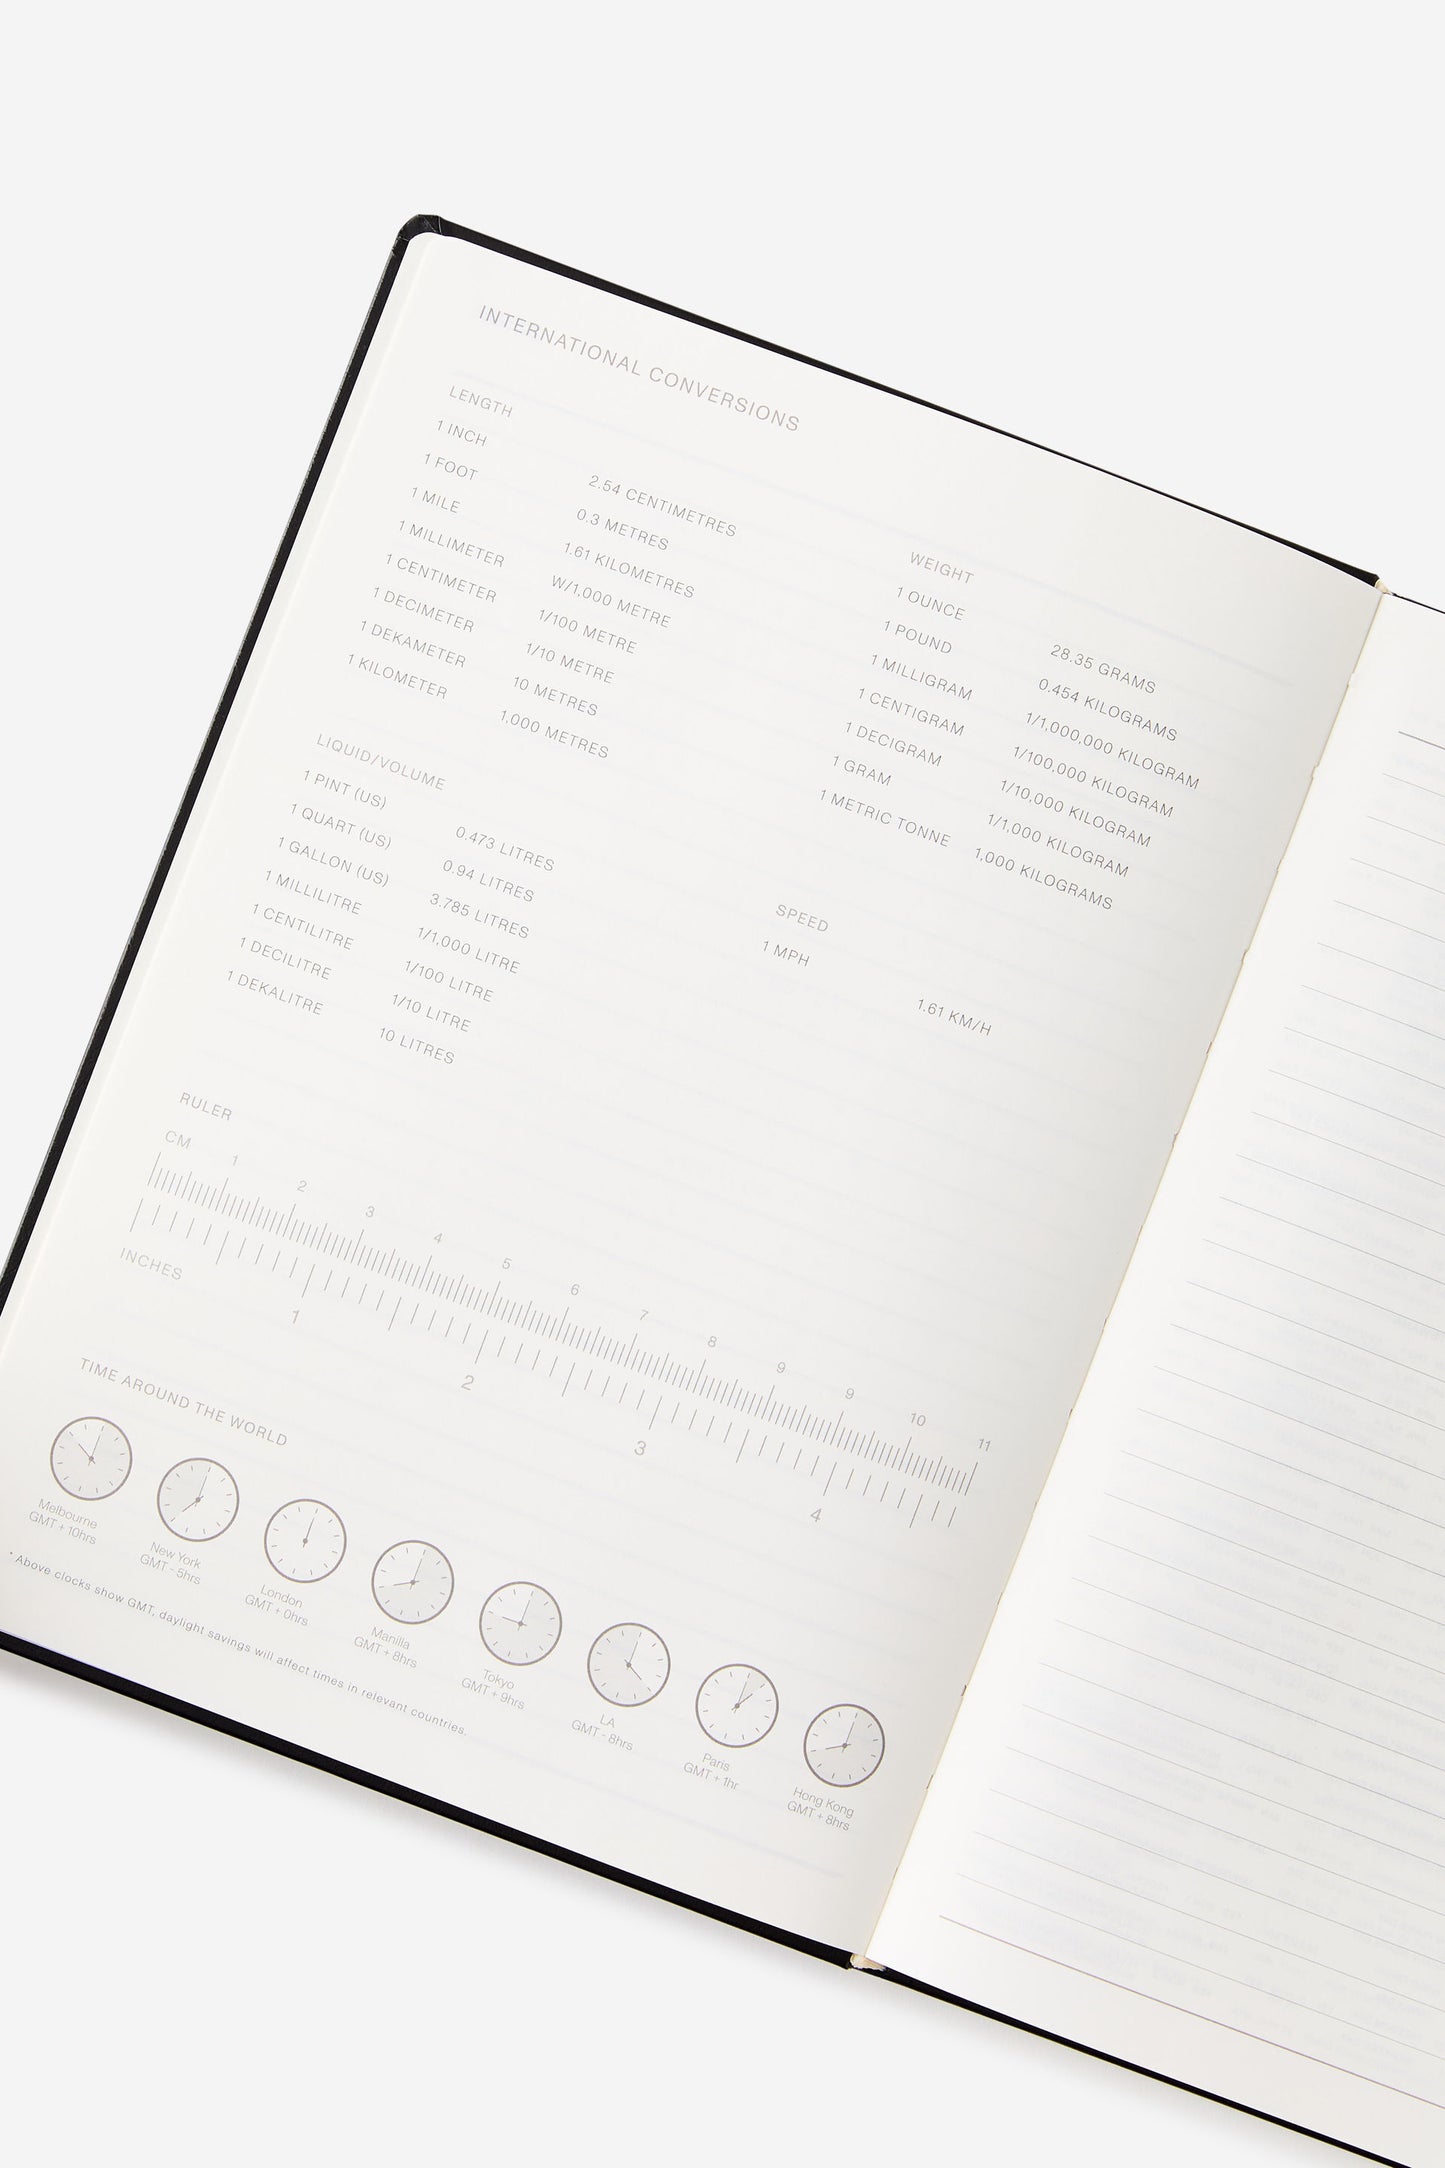 INTERNATIONAL CONVERSIONS
LENGTH
1 INCH 2.54 CENTIMETRES
1 FOOT 0.3 METRES
1 MILE 1.61 KILOMETRES
1 MILLIMETER W/1,000 METRE
1 CENTIMETER 1/100 METRE
1 DECIMETER 1/10 METRE
1 DEKAMETER 10 METRES
1 KILOMETER 1,000 METRES
WEIGHT
1 OUNCE 28.35 GRAMS
1 POUND 0.454 KILOGRAMS
1 MILLIGRAM 1/1,000,000 KILOGRAM
1 CENTIGRAM 1/100,000 KILOGRAM
1 DECIGRAM 1/10,000 KILOGRAM
1 GRAM 1/1,000 KILOGRAM
1 METRIC TONNE 1,000 KILOGRAMS
LIQUID/VOLUME
1 PINT (US) 0.473 LITRES
1 QUART (US) 0.94 LITRES
1 GALLON (US) 3.785 LITRES
1 MILLILITRE 1/1,000 LITRE
1 CENTILITRE 1/100 LITRE
1 DECILITRE 1/10 LITRE
1 DEKALITRE 10 LITRES
SPEED
1 MPH 1.61 KM/H
RULER
CM
1 2 3 4 5 6 7 8 9 9 10 11
INCHES
1 2 3 4
TIME AROUND THE WORLD
Melbourne
GMT + 10hrs
New York
GMT - 5hrs
London
GMT + 0hrs
Manilla
GMT + 8hrs
Tokyo
GMT + 9hrs
LA
GMT - 8hrs
Paris
GMT + 1hr
Hong Kong
GMT + 8hrs
* Above clocks show GMT, daylight savings will affect times in relevant countries.